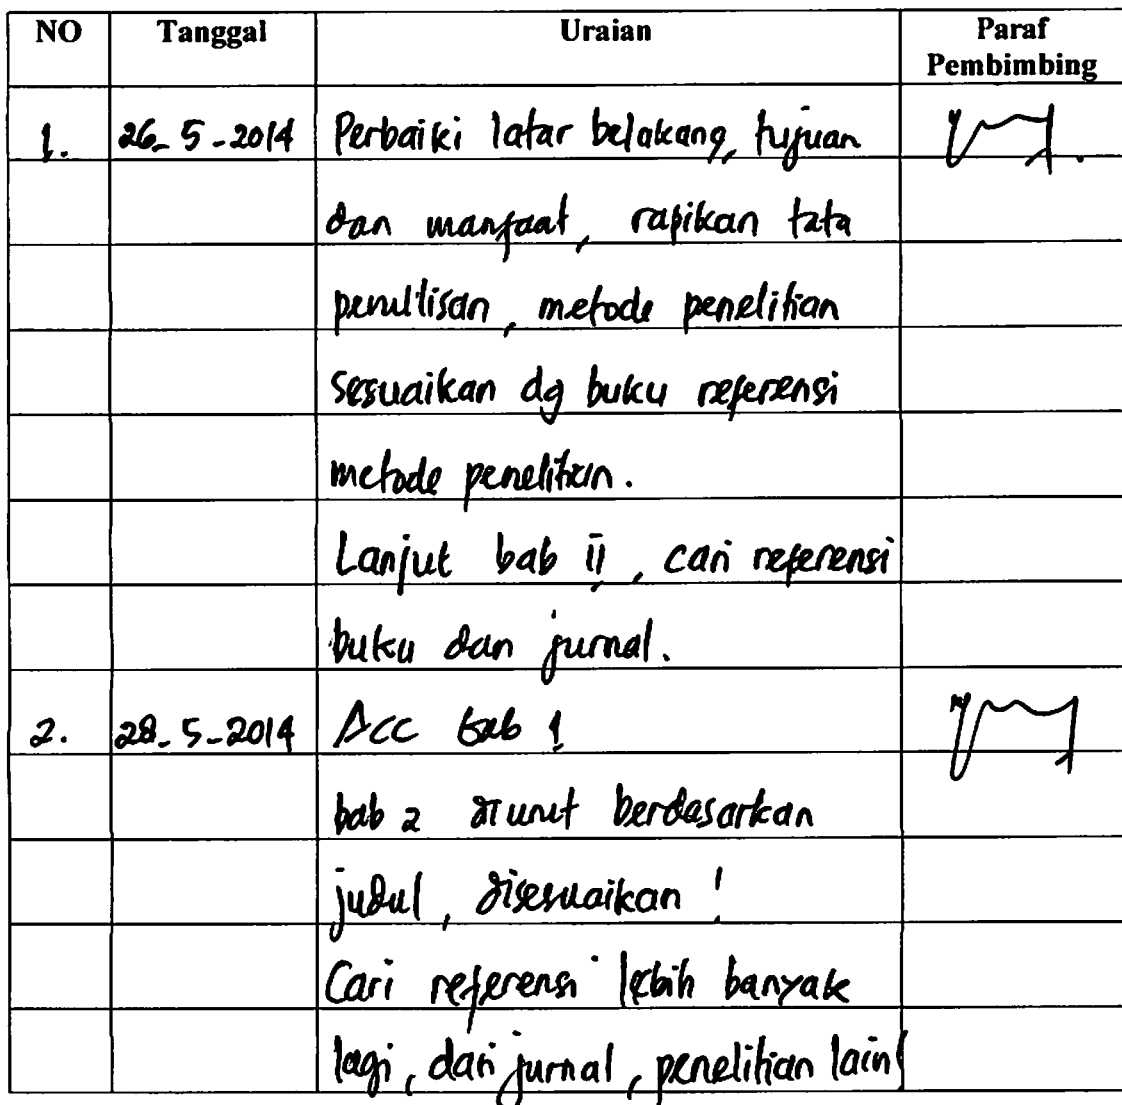 NO Tanggal Uraian Paraf Pembimbing
1. 26-5-2014 Perbaiki latar belakang, tujuan
dan manfaat, rapikan tata
penultisan, metode penelitian
sesuaikan dg buku referensi
metode penelitian.
Lanjut bab ii, cari referensi
buku dan jurnal.
2. 28-5-2014 Acc bab 1
bab 2 di urut berdasarkan
judul, disesuaikan !
Cari referensi lebih banyak
lagi, dari jurnal, penelitian lain